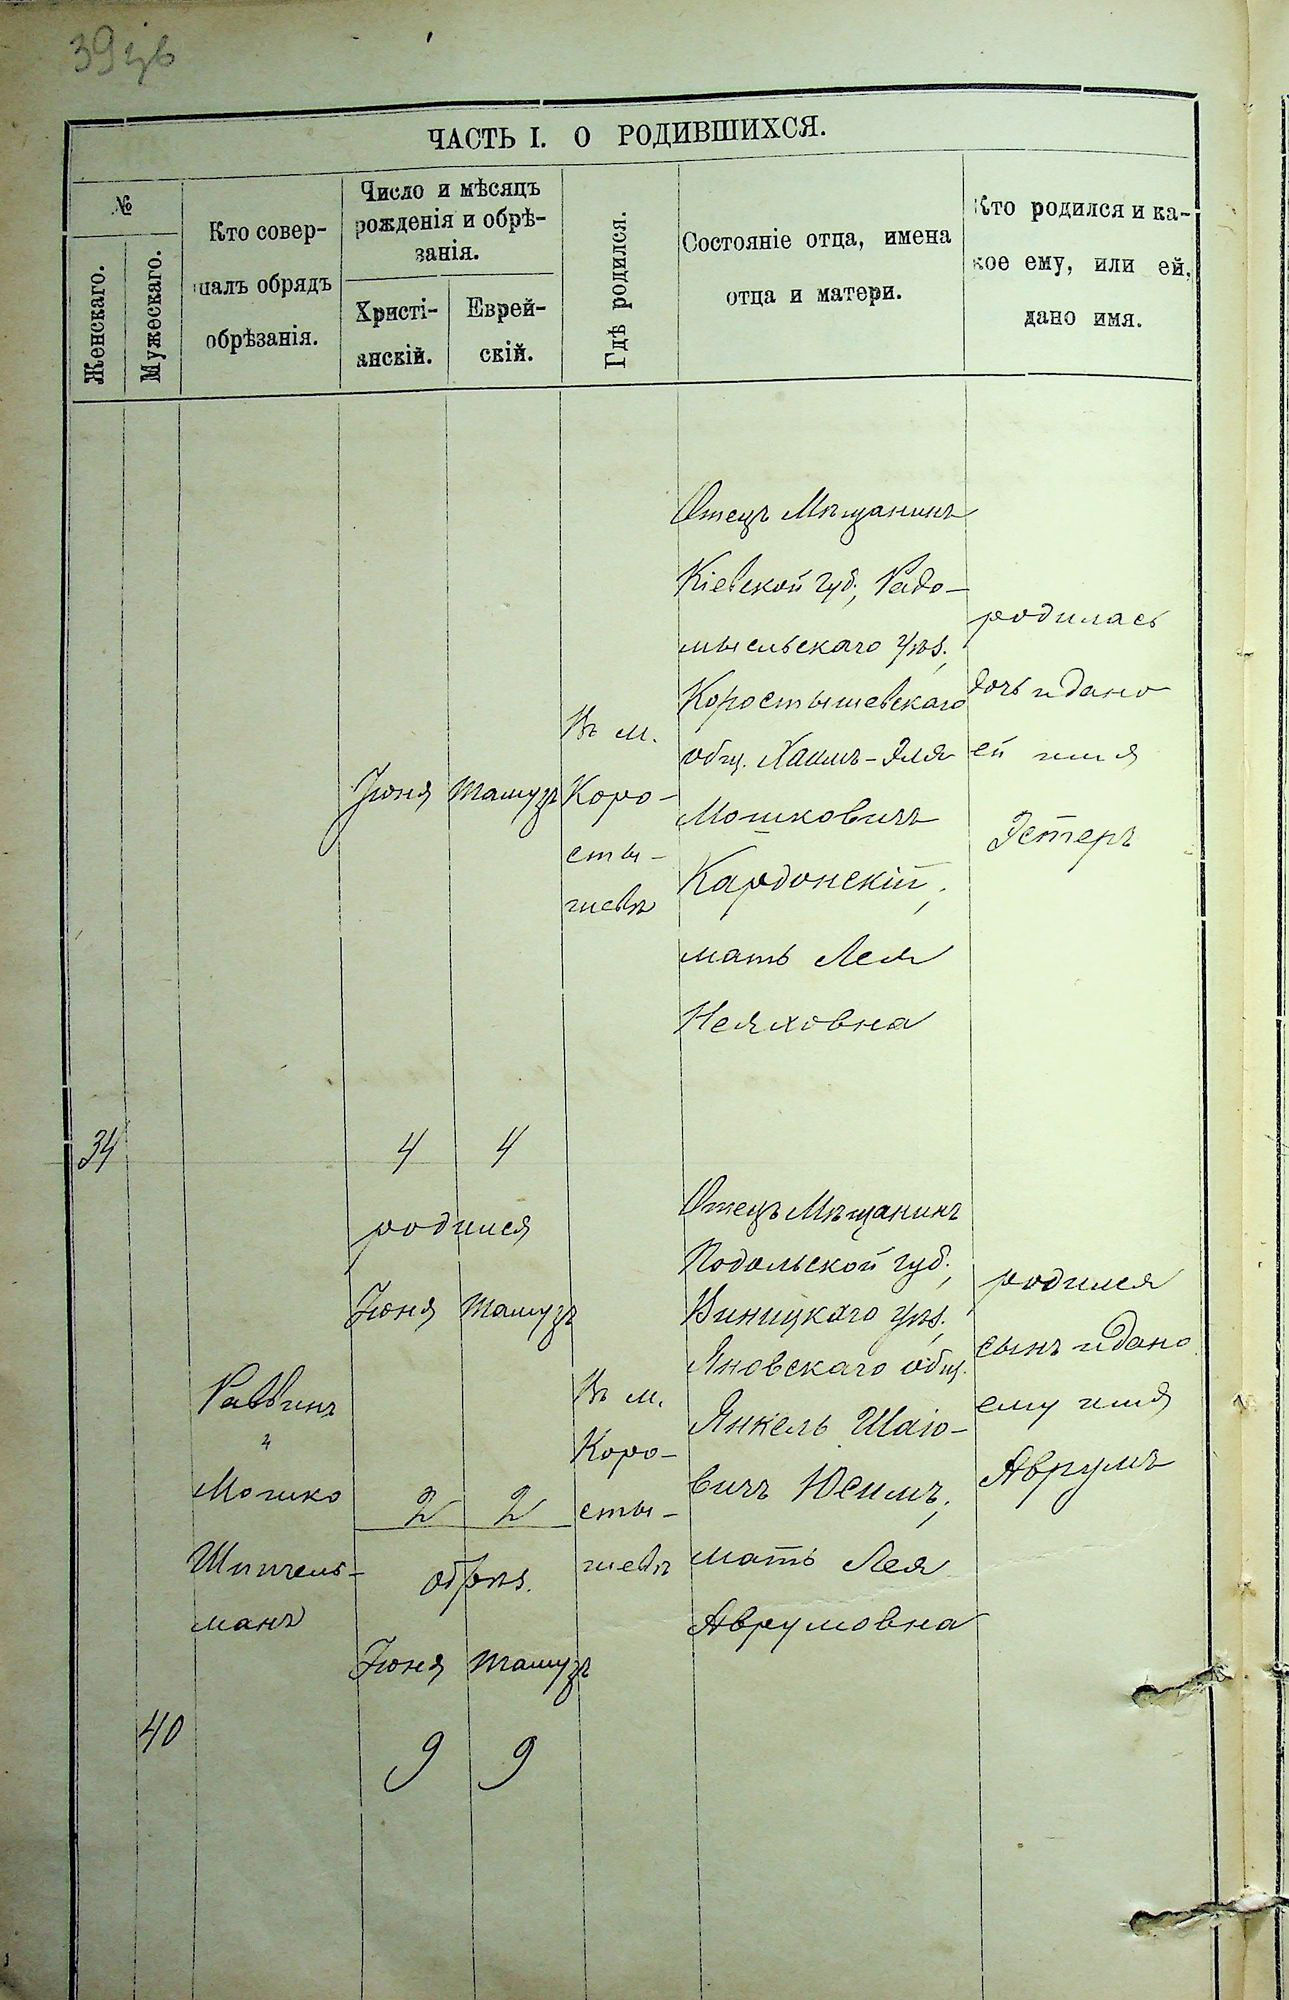 39зв
ЧАСТЬ I. О РОДИВШИХСЯ.
№
Женскаго.
Мужескаго.
Кто совер-
шалъ обрядъ
обрѣзанія.
Число и мѣсяцъ
рожденія и обрѣ-
занія.
Христі-
анскій.
Еврей-
скій.
Гдѣ родился.
Состояніе отца, имена
отца и матери.
Кто родился и ка-
кое ему, или ей,
дано имя.
34
Іюня Тамузъ
4 4
Въ м.
Коро-
сты-
шевѣ
Отецъ Мѣщанинъ
Кіевской губ., Радо-
мысльскаго уѣз.,
Коростышевскаго
общ. Хаимъ-Эля
Мошковичъ
Кардонскій,
мать Лея
родилась
дочь и дано
ей имя
Эстеръ
40
Раввинъ
Мошко
Шпичель-
манъ
родился
Іюня Тамузъ
2 2
обрѣз.
Іюня Тамузъ
9 9
Въ м.
Коро-
сты-
шевѣ
Отецъ Мѣщанинъ
Подольской губ.,
Виницкаго уѣз.,
Яновскаго общ.
Янкель Шаіо-
вичъ Юсимъ,
мать Лея
Аврумовна
родился
сынъ и дано
ему имя
Аврумъ